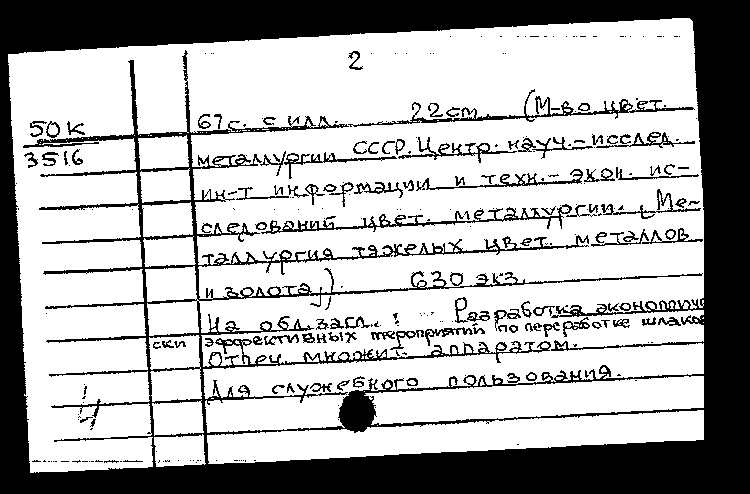 2
50К
3516
67с. с илл. 22см. (М-во цвет.
металлургии СССР. Центр. науч.-исслед.
ин-т информации и техн.-экон. ис-
следований цвет. металлургии. [Ме-
таллургия тяжелых цвет. металлов
и золота]). 630 экз.
На обл. загл.: Разработка экономиче
ски эффективных мероприятий по переработке шлаков
Отпеч. множит. аппаратом.
Для служебного пользования.
4